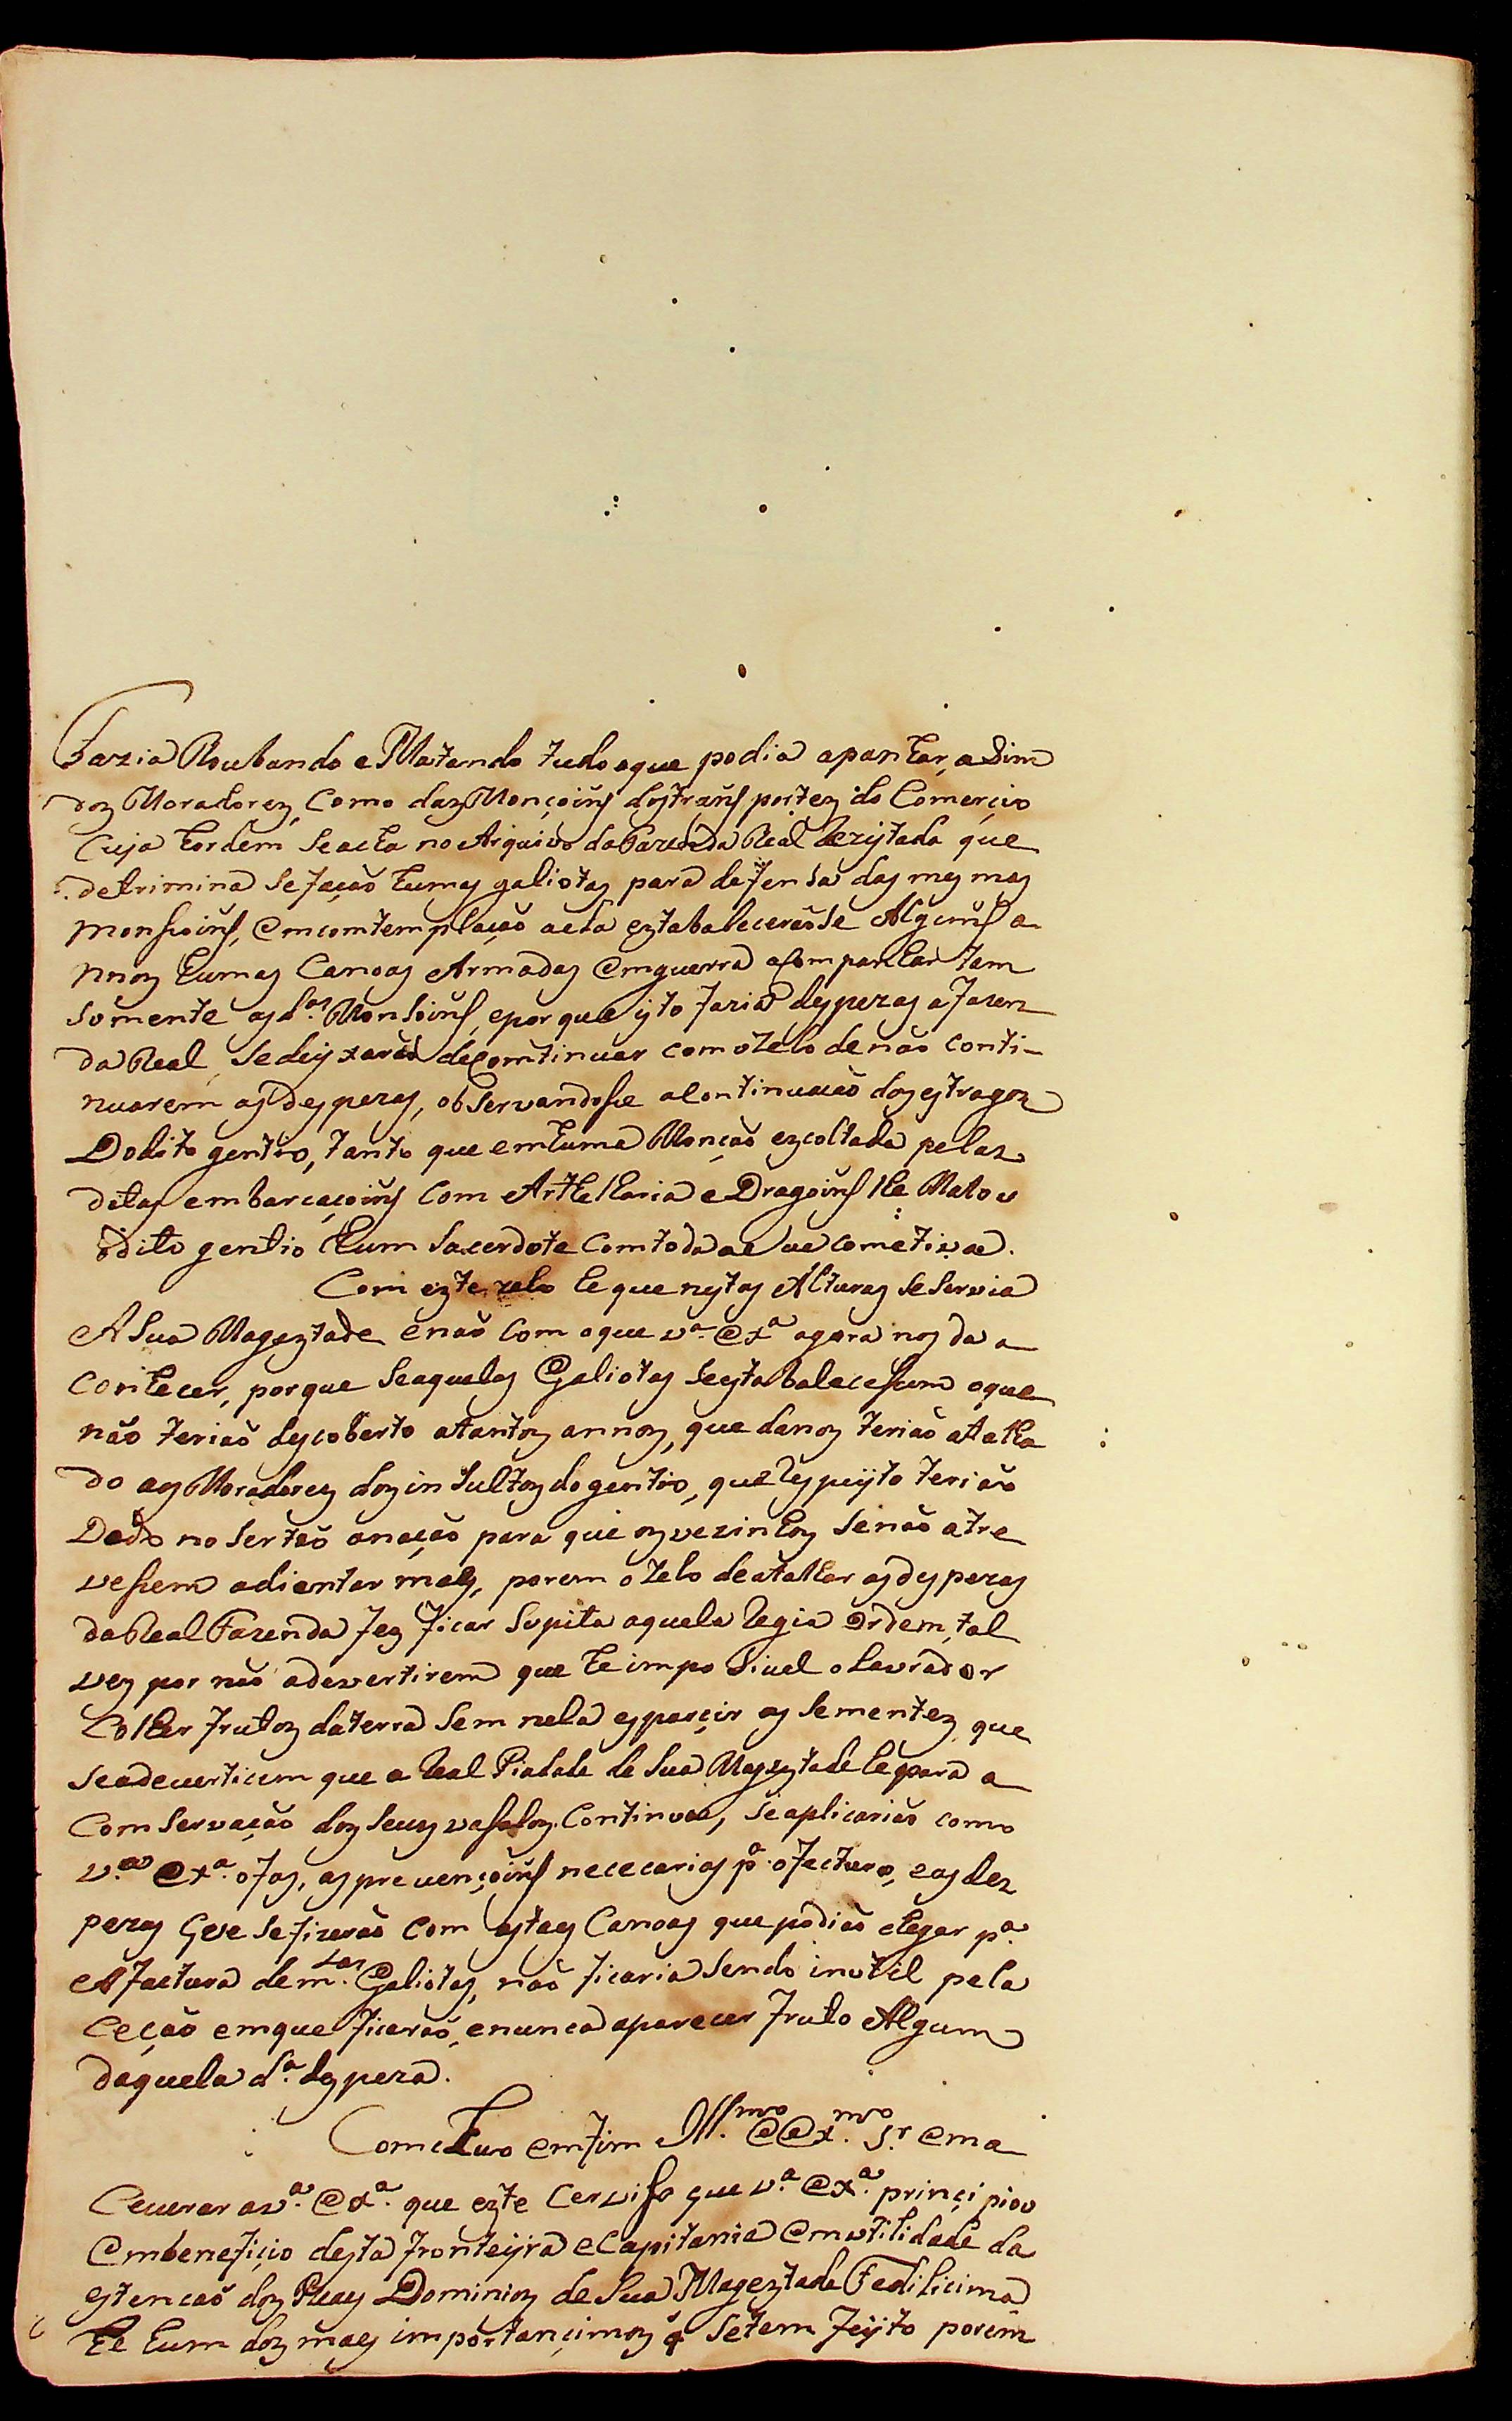 Fazia Roubando e Matando tudo oque podia apanhar, asim
dos Moradores, Como das Monçoins dostransportes do Comerçio
Cuja hordem Seacha no Arquivo da Fazenda Real Rezistada que
detrimina Sefação humas galiotas para defensa das mes mas
monssoins, Emcomtemplação aela estabalecerãose Alguns a
nnos humas Canoas Armadas Emguerra acompanhar tam
Somente as d.as Monsoins, eporque isto fazia despezas afazen
da Real, Sedeixarão decomtinuar como zelo denão Conti-
nuarem as despezas, obServandosse aContinuação dos estragos
Dodito gentio, tanto que emhuma Monção escoltada pelas
ditas embarcaçoins Com Arthelharia e Dragoins lhe Matou
odito gentio hum Sacerdote Comtoda a Sua Cometiva.
Com este zelo he que nestas Alturas Se Servia
A Sua Magestade enão Com oque v.a Ex.a agora nos da a
Conhecer, porque Seaquelas Galiotas Seestabalecessem oque
não terião descoberto atantos annos, que danos terião atalha
do aos Moradores dos insultos do gentio, que Respeijto terião
Dado no Sertão anação para que os vezinhos Senão atre
vessem adientar mais, porem ozelo deatalhar as despezas
da Real Fazenda fez ficar Supita aquela Regia Ordem, tal
vez por não adevertirem que he imposivel oLavrador
Colher frutos daterra Sem nela esparçir as Sementes, que
Seadevertiçem que a Real Piadade de Sua Magestade he para a
ComServação dos Seus vasalos Continua, Seaplicarião como
v.a Ex.a ofas, as prevençoins nececarias p.a ofecturo, eas des
pezas que Sefizerão Com estas Canoas que podião chegar p.a
A factura dem.tas Galiotas, não ficaria Sendo inutil pela
Ceção emque ficarão, enunca aparecer fruto Algum
daquela d.a despeza.
Comcluo emfim Ill.mo E Ex.mo S.r Ema
Ceverar av.a Ex.a que este Cervisso que v.a Ex.a prinçipiou
Embenefiçio desta fronteijra eCapitania Emutilidade da
estencão dos Reais Dominios de Sua Magestade Fedilicima
he hum dos mais importançimos q Setem feijto porem